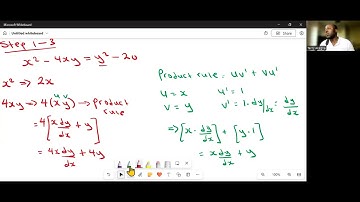 Microsoft Whiteboard
Untitled whiteboard
Step 1-3
x² - 4xy = y² - 20
x² => 2x
u v
4xy → 4(xy) → product rule
= 4[x dy/dx + y]
= 4x dy/dx + 4y
Product rule = uv' + vu'
u = x u' = 1
v = y v' = 1·dy/dx = dy/dx
=> [x · dy/dx] + [y·1]
= x dy/dx + y